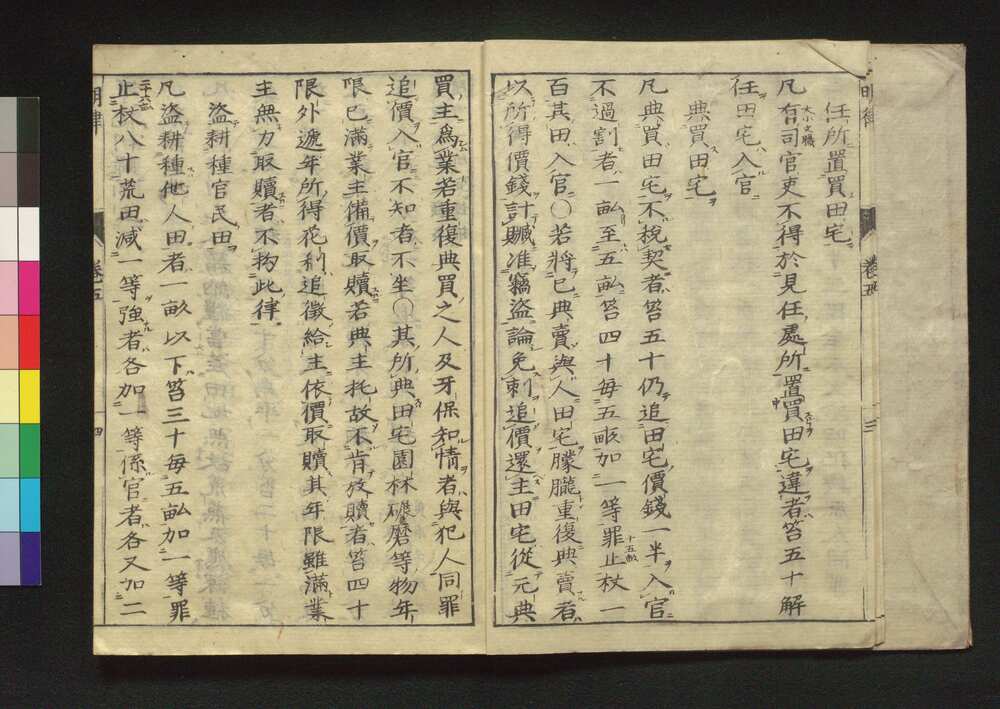 任所置買田宅
凡有司官吏不得於見任處所置買田宅違者笞五十解
任田宅入官
典買田宅
凡典買田宅不稅契者笞五十仍追田宅價錢一半入官
不過割者一畝至五畝笞四十每五畝加一等罪止杖一
百其田入官○若將已典賣與人田宅朦朧重復典賣者
以所得價錢計贓准竊盜論免刺追價還主田宅從元典
買主爲業若重復典買之人及牙保知情者與犯人同罪
追價入官不知者不坐○其所典田宅園林碾磨等物年
限已滿業主備價取贖若典主托故不肯放贖者笞四十
限外遞年所得花利追徵給主依價取贖其年限雖滿業
主無力取贖者不拘此律
盜耕種官民田
凡盜耕種他人田者一畝以下笞三十每五畝加一等罪
止杖八十荒田減一等強者各加一等係官者各又加二
明律 卷五 三
明律 卷五 四